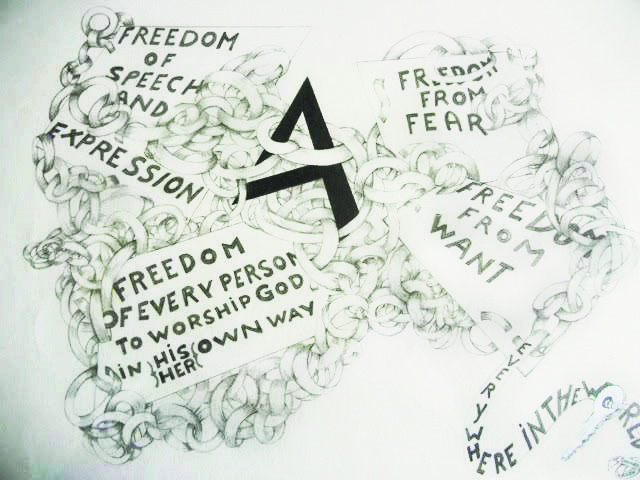 FREEDOM
OF
SPEECH
AND
EXPRESSION
A
FREEDOM
FROM
FEAR
FREEDO
FROM
WANT
FREEDOM
OF EVERY PERSON
TO WORSHIP GOD
IN }HIS{ OWN WAY
}HER{
EVERYWHERE IN THE